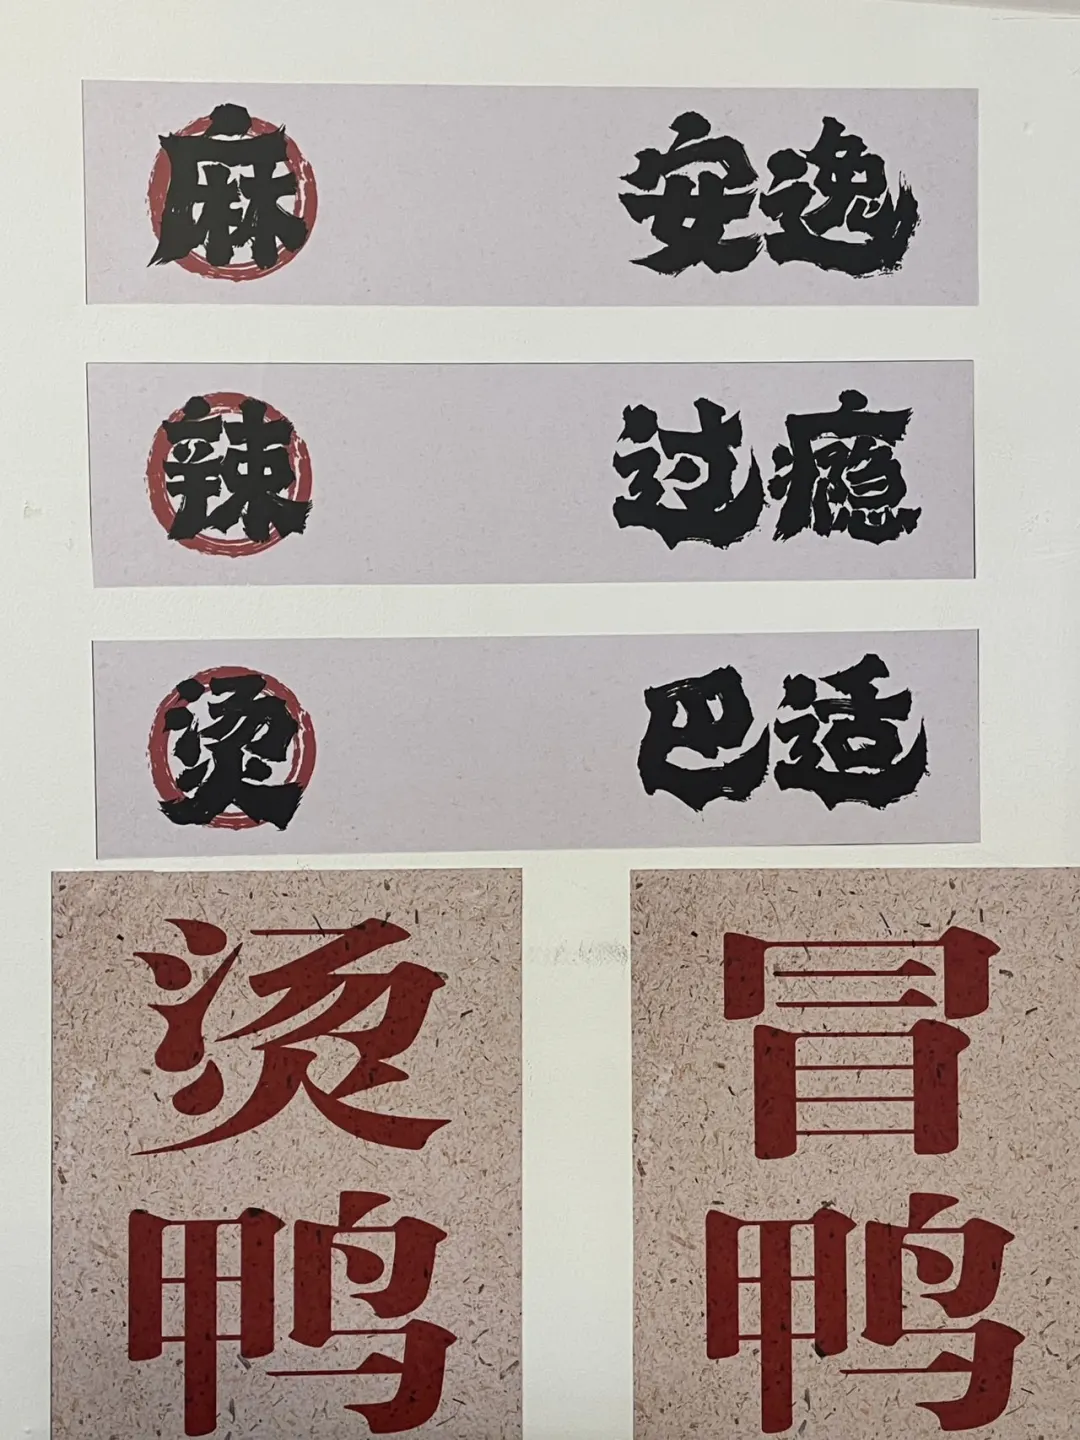 麻 安逸
辣 过瘾
烫 巴适
烫鸭
冒鸭